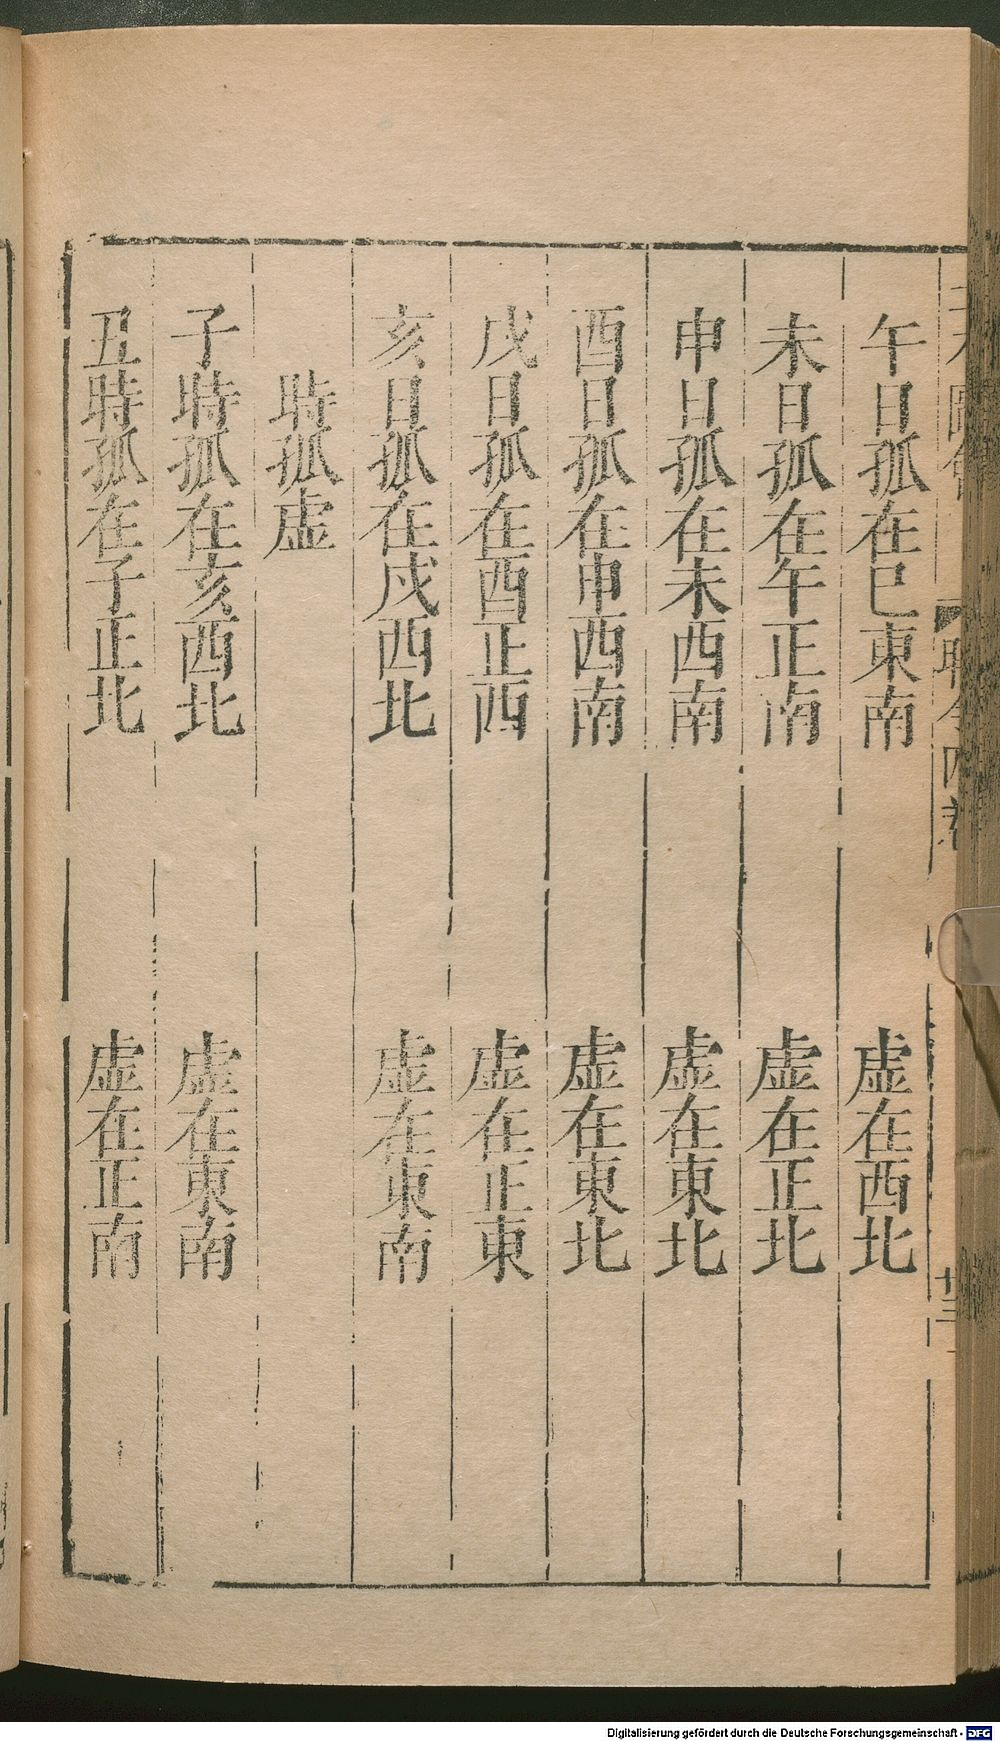 午日孤在巳東南　虛在西北
未日孤在午正南　虛在正北
申日孤在未西南　虛在東北
酉日孤在申西南　虛在東北
戌日孤在酉正西　虛在正東
亥日孤在戌西北　虛在東南
時孤虛
子時孤在亥西北　虛在東南
丑時孤在子正北　虛在正南
廿三
Digitalisierung gefördert durch die Deutsche Forschungsgemeinschaft - DFG